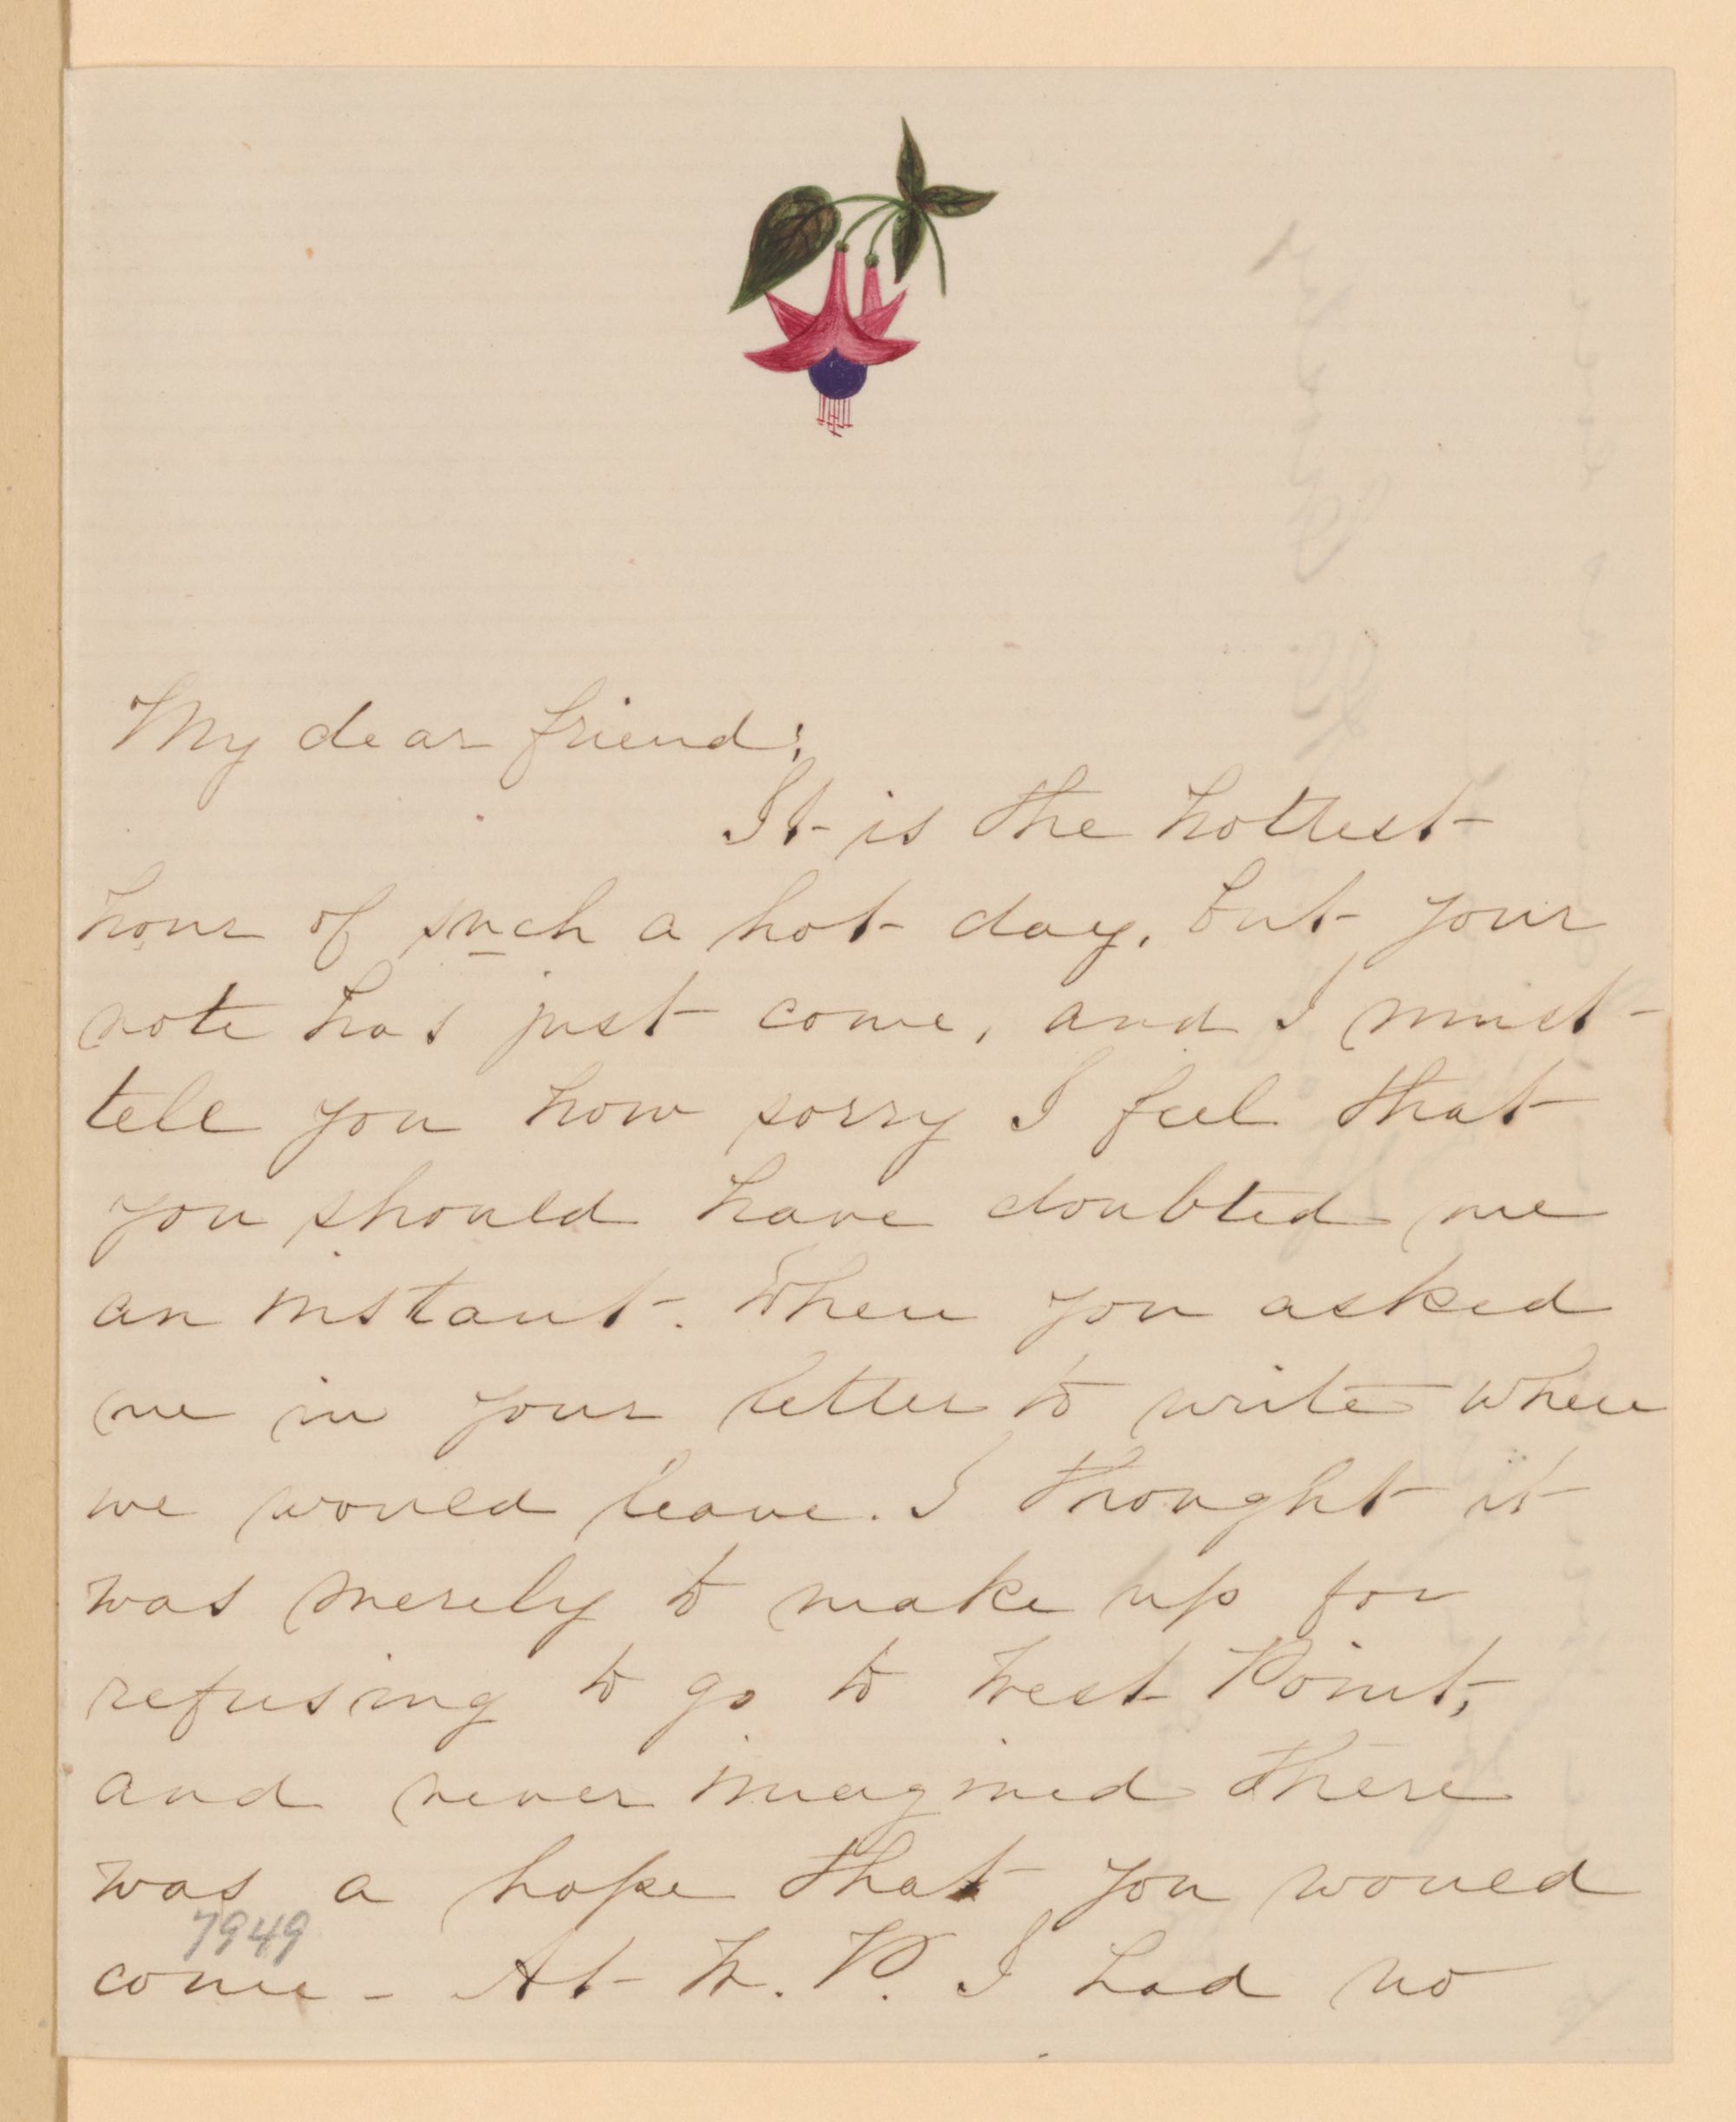 My dear friend;
It is the hottest
hour of such a hot day, but your
note has just come, and I must
tell you how sorry I feel that
you should have doubted me
an instant. When you asked
me in your letter to write when
we would leave. I thought it
was merely to make up for
refusing to go to West Point,
and never imagined there
was a hope that you would
7949
come - At W. P. I had no